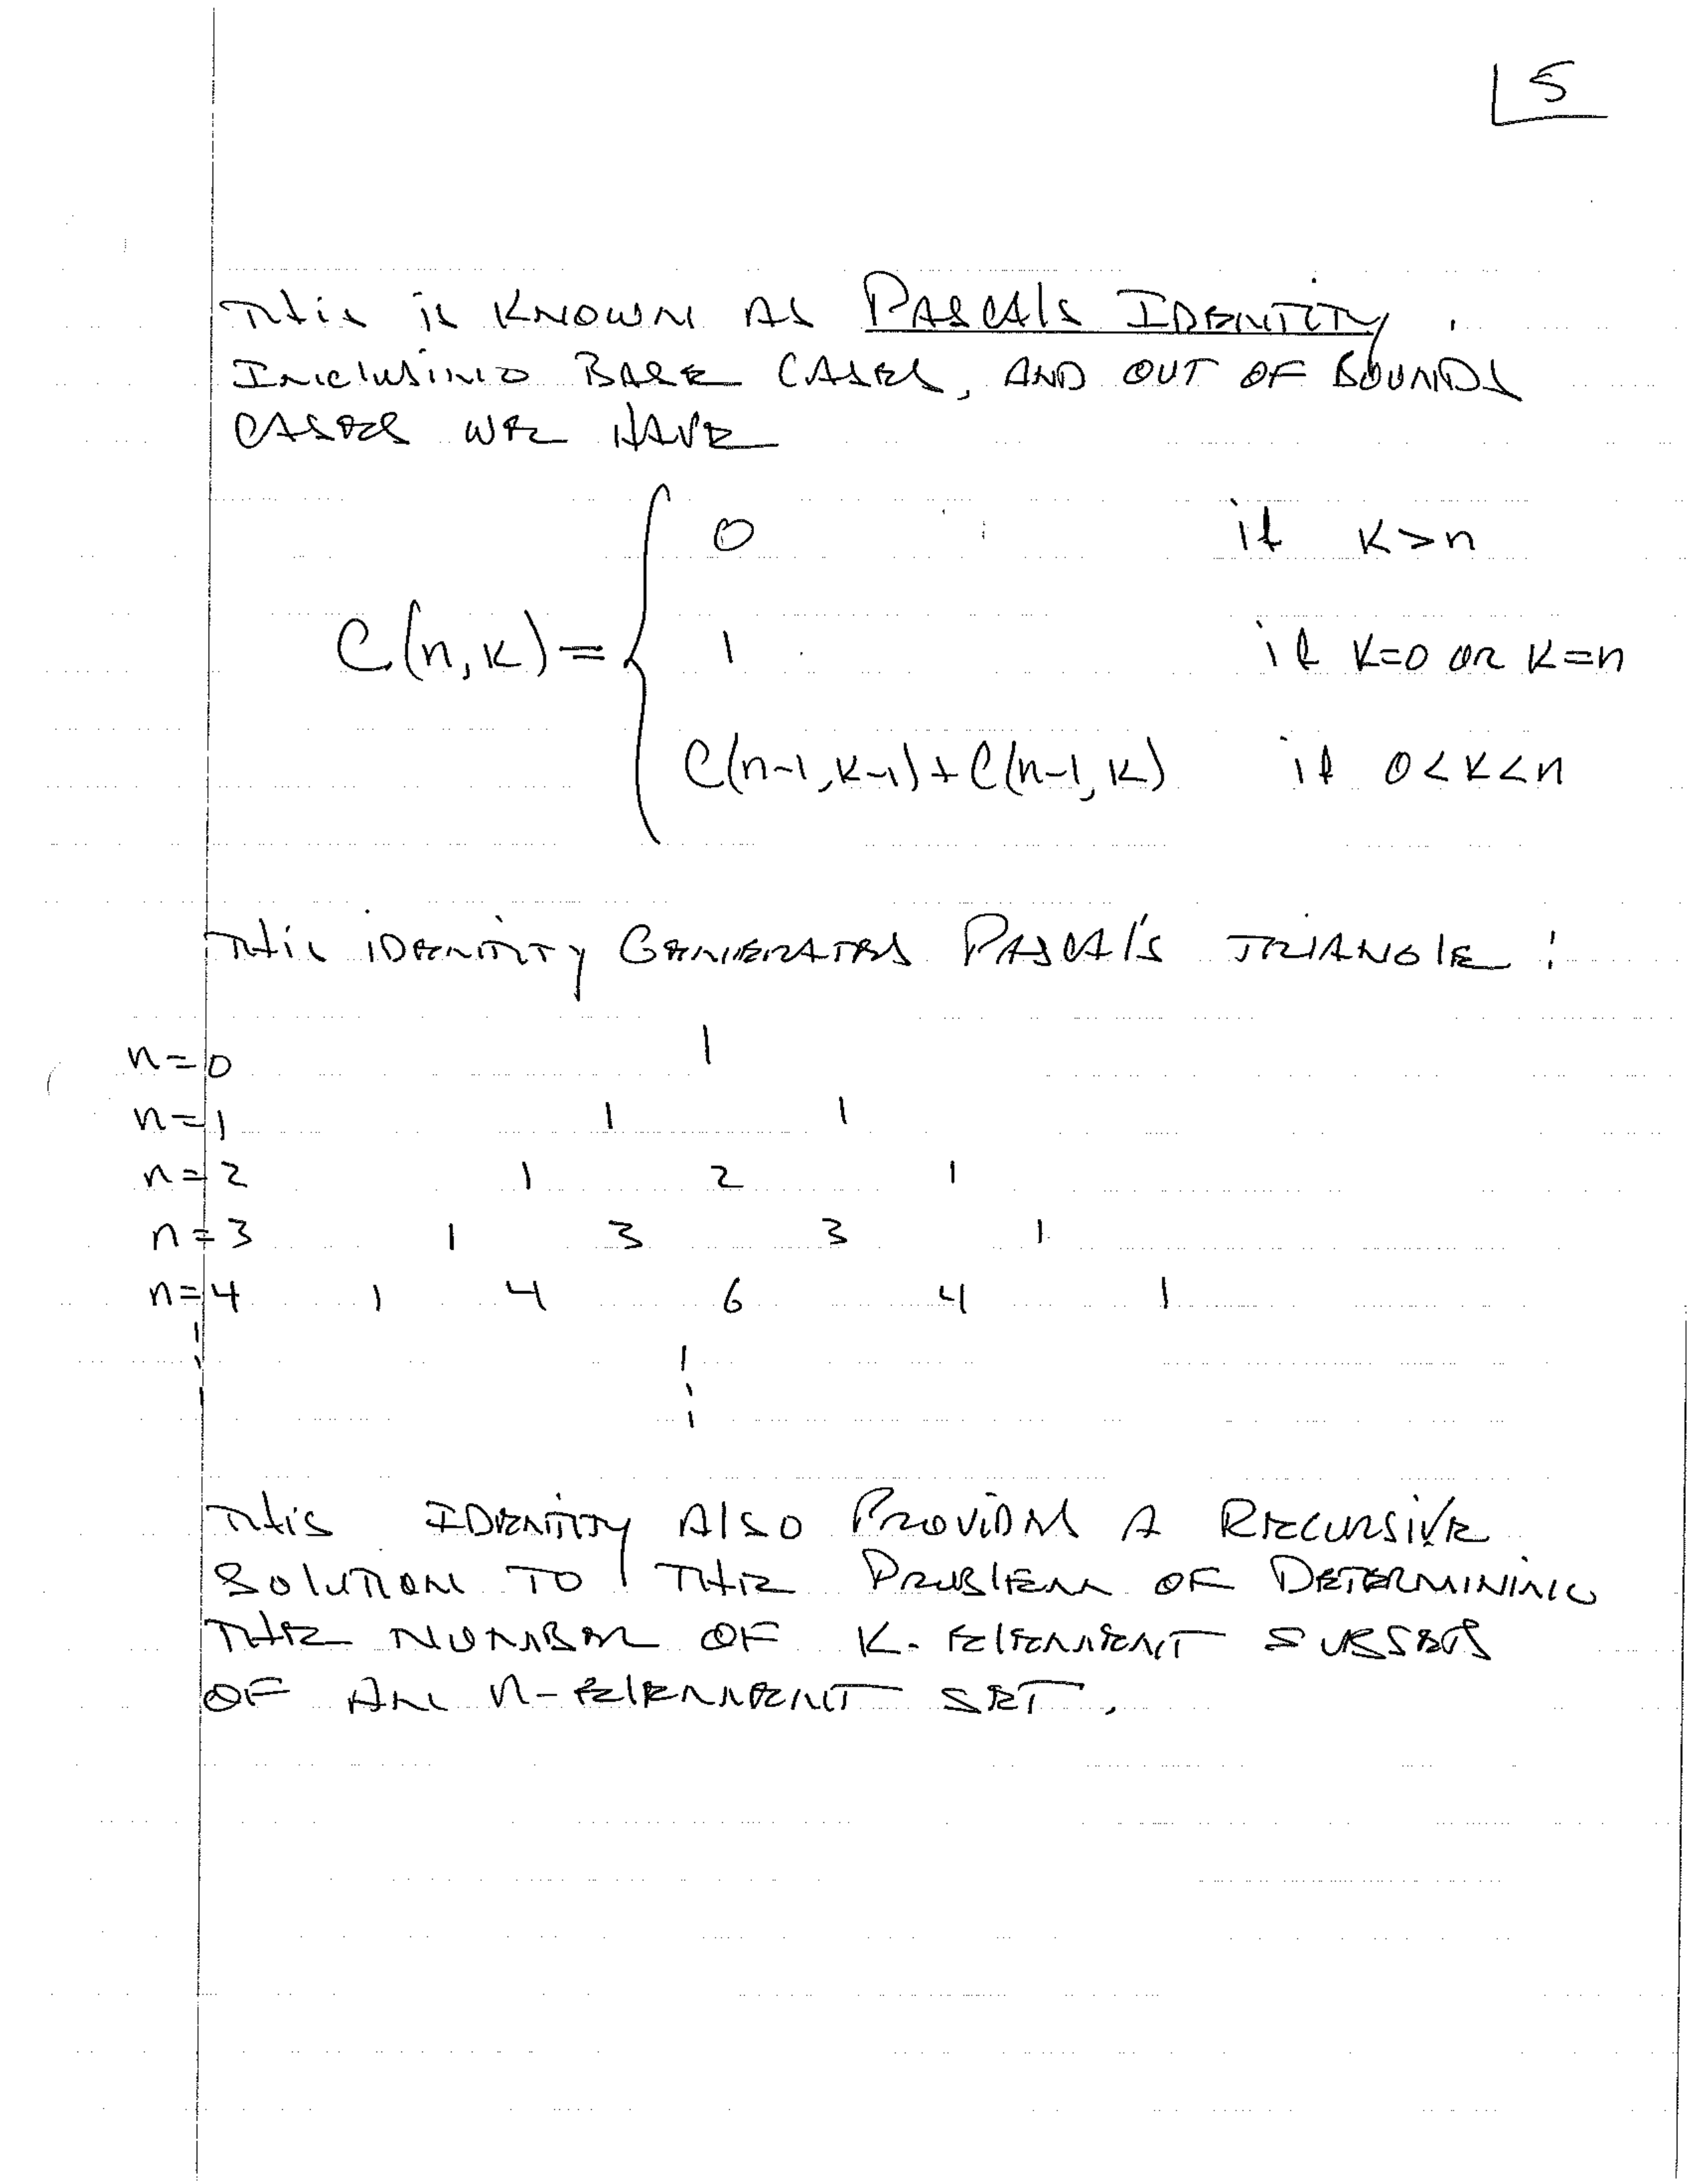 5
This is known as Pascals Identity.
Including base cases, and out of bounds
cases we have
0 if k>n
C(n,k)= 1 if k=0 or k=n
C(n-1,k-1)+C(n-1,k) if 0<k<n
This identity generates Pascal's triangle:
n=0 1
n=1 1 1
n=2 1 2 1
n=3 1 3 3 1
n=4 1 4 6 4 1
This identity also provides a recursive
solution to the problem of determining
the number of k-element subsets
of an n-element set.